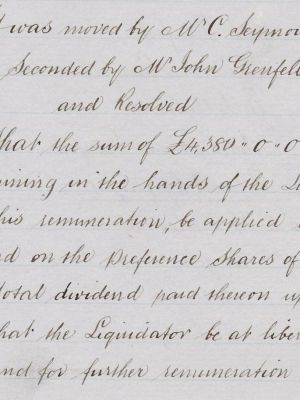 t was moved by Mr C. Seymou
Seconded by Mr John Grenfell
and Resolved
That the sum of £4,380 " 0 " 0
ining in the hands of the L
his remuneration, be applied
d on the Preference Shares of
total dividend paid thereon up
hat the Liquidator be at liber
nd for further remuneration